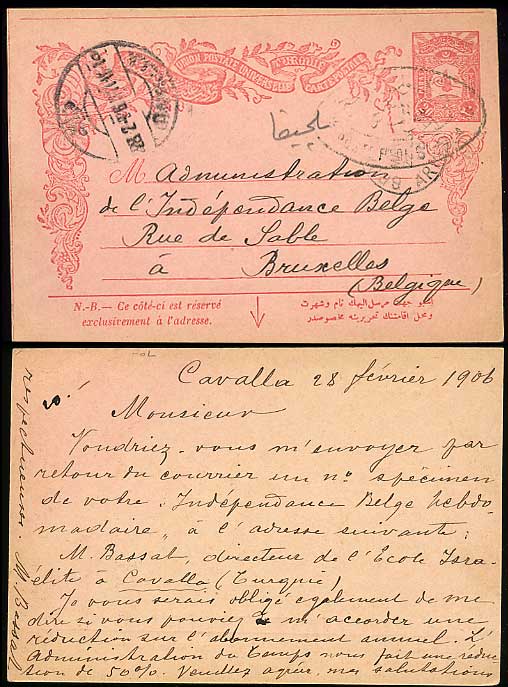 UNION POSTALE UNIVERSELLE
CARTE POSTALE
M Administration
de l'Indépendance Belge
Rue de Sable
à Bruxelles
(Belgique)
N.-B.— Ce côté-ci est réservé
exclusivement à l'adresse.
Cavalla 28 février 1906
Monsieur
Voudriez-vous m'envoyer par
retour du courrier un no spécimen
de votre „Indépendance Belge hebdo-
madaire„ à l'adresse suivante:
M. Bassat, directeur de l'École Isra-
élite à Cavalla (Turquie)
Je vous serais obligé également de me
dire si vous pouviez m'accorder une
réduction sur l'abonnement annuel. L'
Administration du Temps nous fait une réduc-
tion de 50%. Veuillez agréer mes salutations
respectueuses. M. Bassat